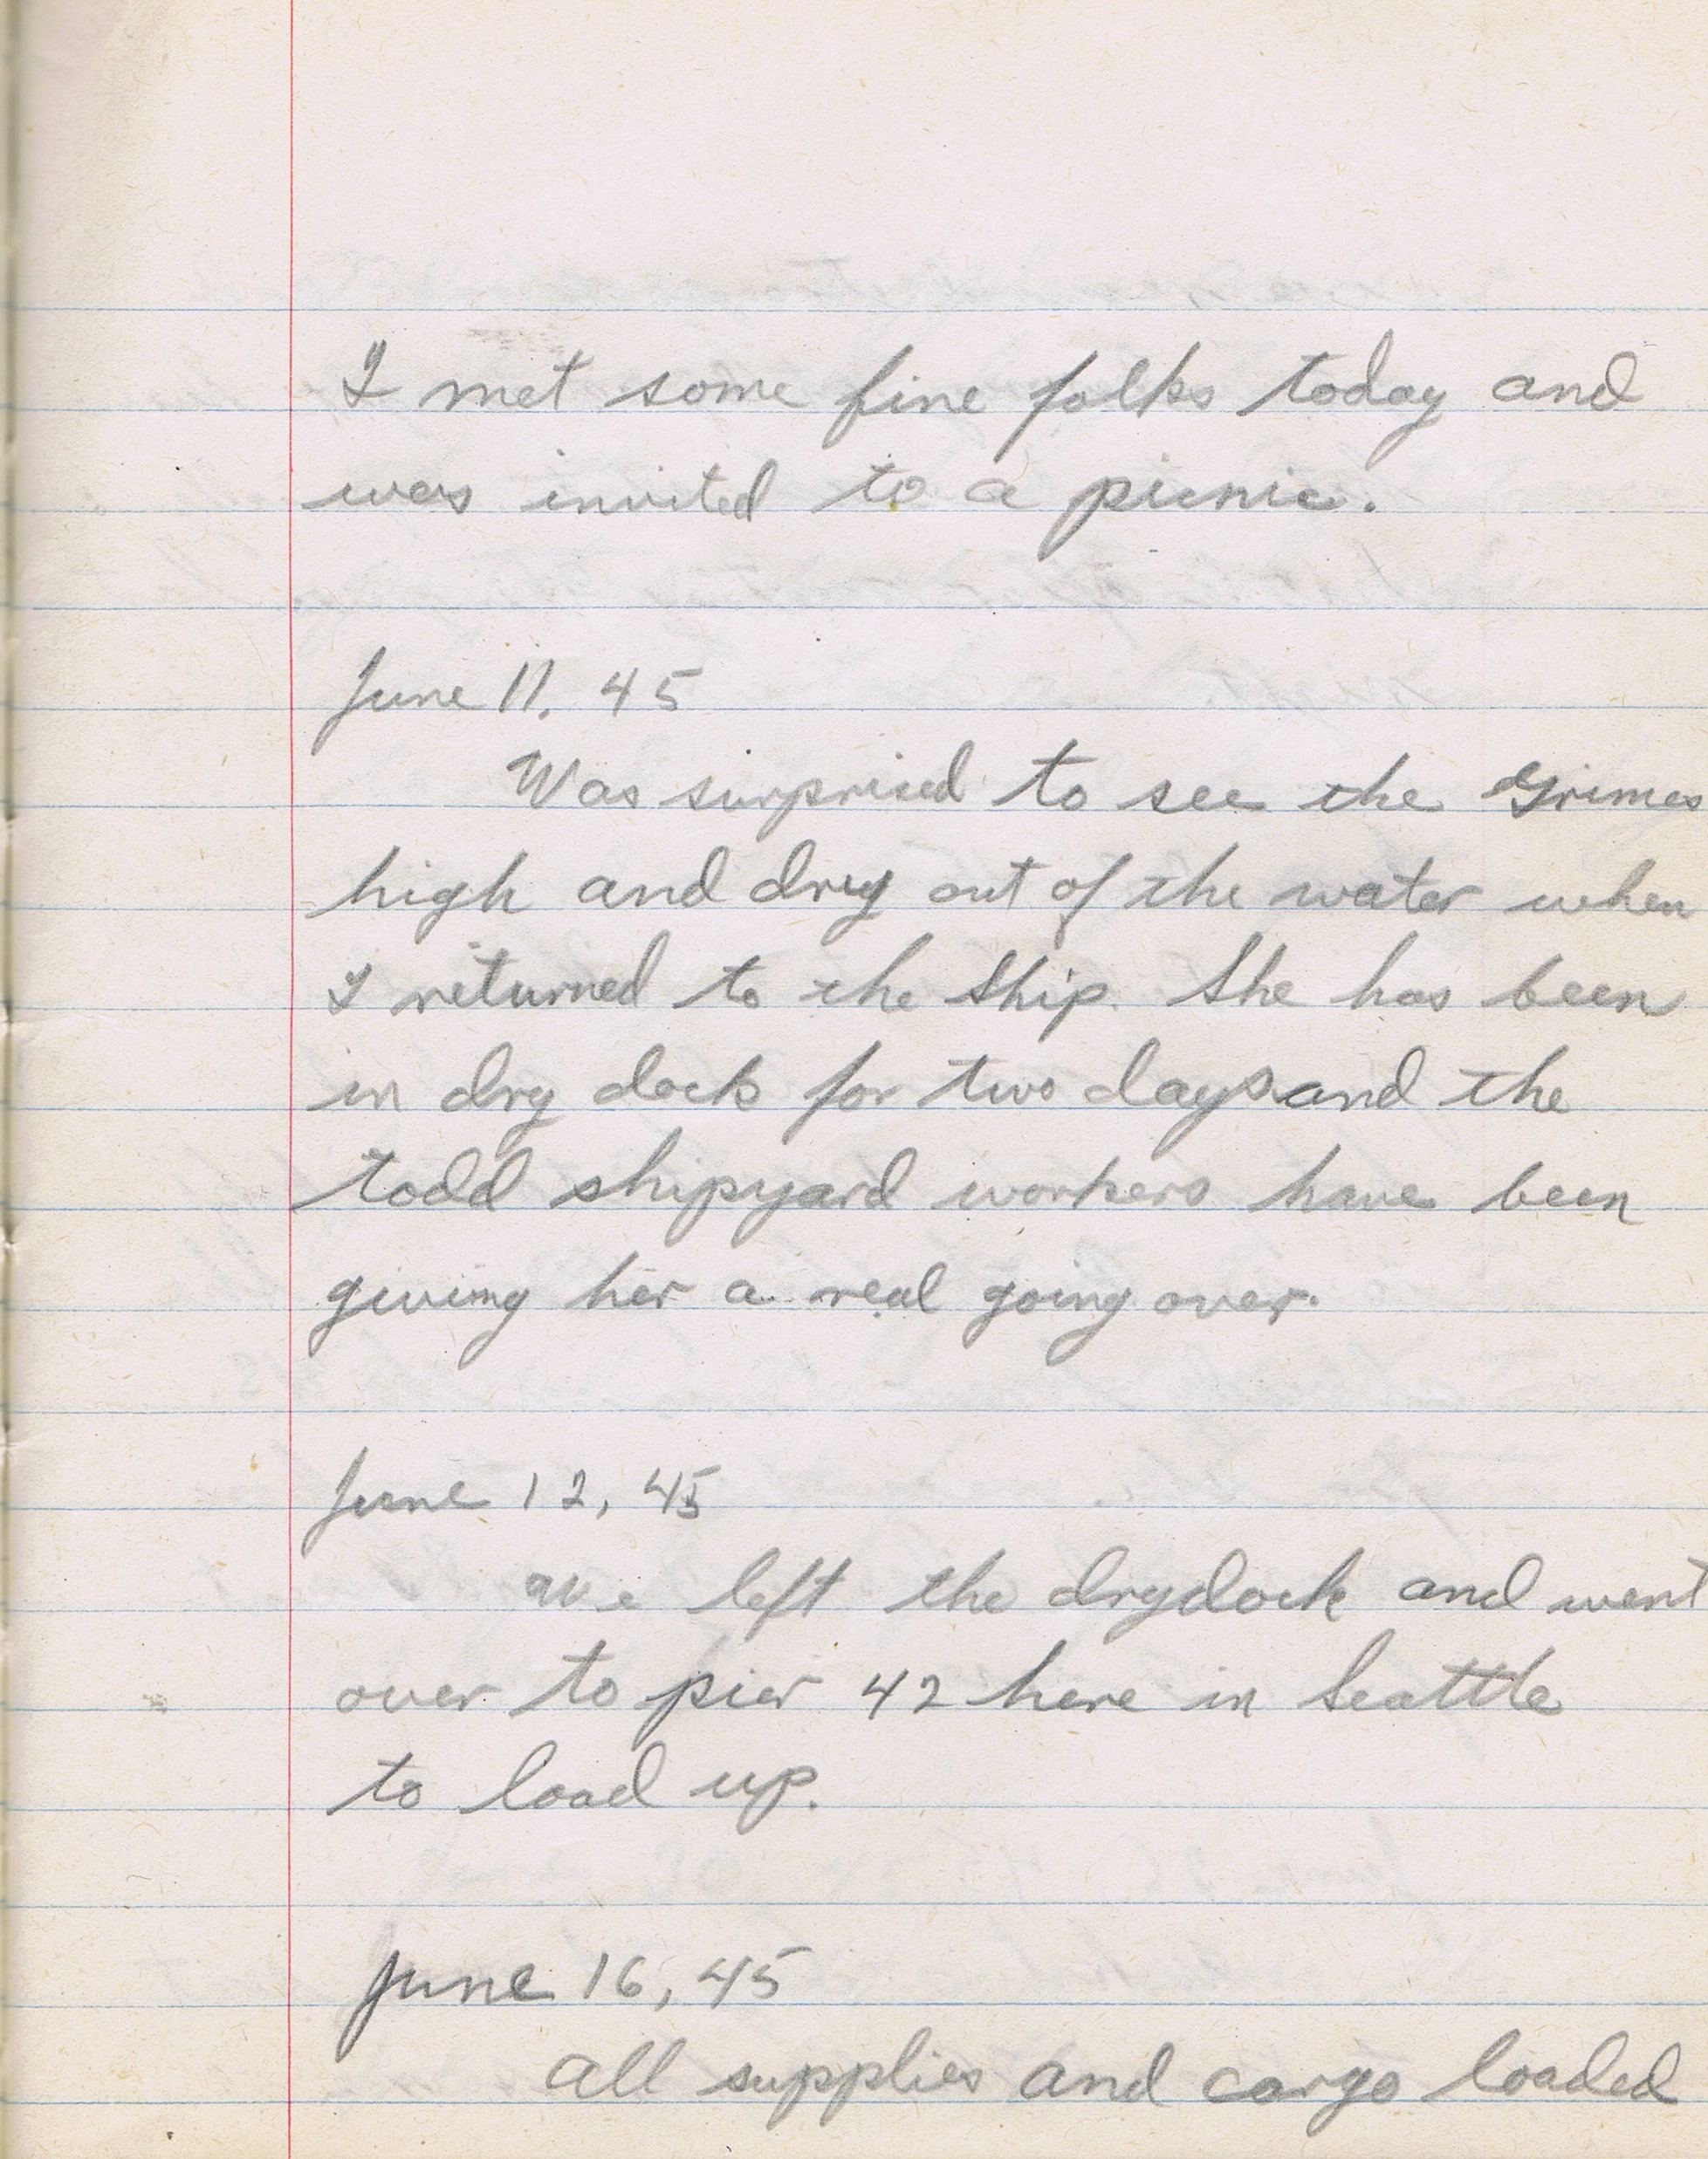 I met some fine folks today and
was invited to a picnic.
June 11, 45
Was surprised to see the Grimes
high and dry out of the water when
I returned to the ship. She has been
in dry dock for two days and the
todd shipyard workers have been
giving her a real going over.
June 12, 45
We left the drydock and went
over to pier 42 here in Seattle
to load up.
June 16, 45
All supplies and cargo loaded